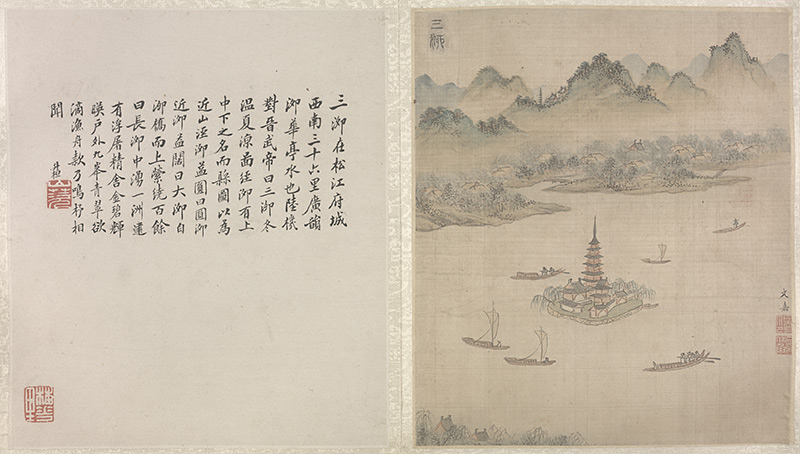 三泖在松江府城
西南三十六里廣韻
泖華亭水也陸機
對晉武帝曰三泖冬
温夏涼而廷泖有上
中下之名而縣圖以為
近山涇泖益圓曰圓泖
近泖益闊曰大泖自
泖橋而上縈繞百餘
曰長泖中湧一洲還
有浮屠精舍金碧輝
暎戶外九峯青翠欲
滴漁舟欸乃鳴相
聞
三泖
文嘉